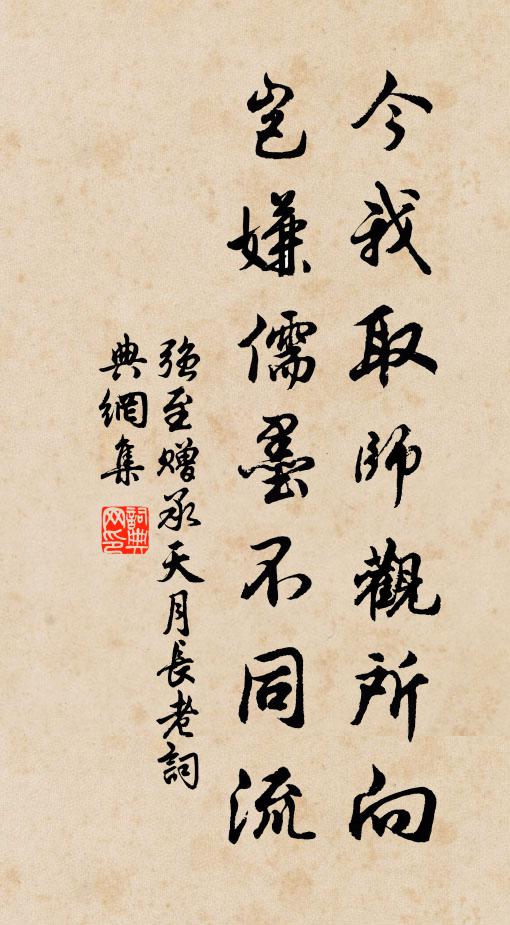 今我取師觀所向
豈嫌儒墨不同流
強至贈承天月長老詞
典網集
詞典網印